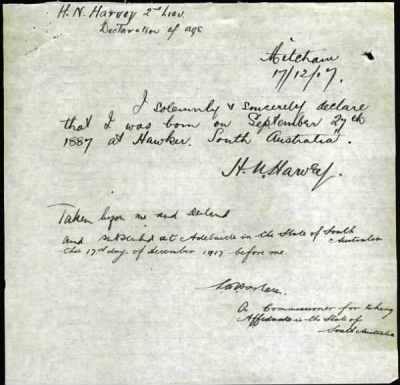 H. N. Harvey 2nd Lieu.
Declaration of age
Mitcham
17/12/17.
I solemnly & sincerely declare
that I was born on September 27th
1887 at Hawker. South Australia.
H. N Harvey.
Taken before me and Declared
and subscribed at Adelaide in the State of South
Australia
this 17th day of December 1917 before me.
A Commissioner for taking
Affidavits in the State of
South Australia